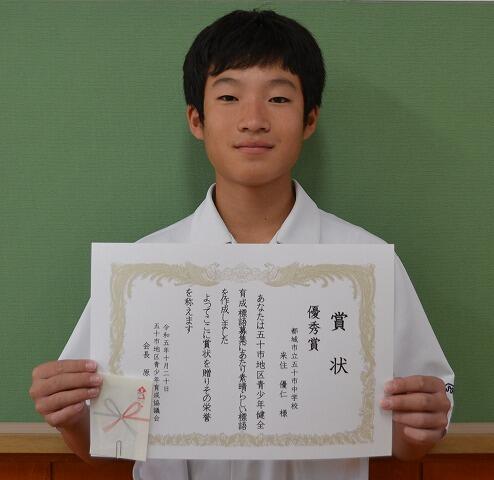 賞状
優秀賞
都城市立五十市中学校
来住 優仁 様
あなたは五十市地区青少年健全
育成標語募集にあたり素晴らしい標語
を作成しました
よってここに賞状を贈りその栄誉
を称えます
令和五年十月二十日
五十市地区青少年育成協議会
会長 原